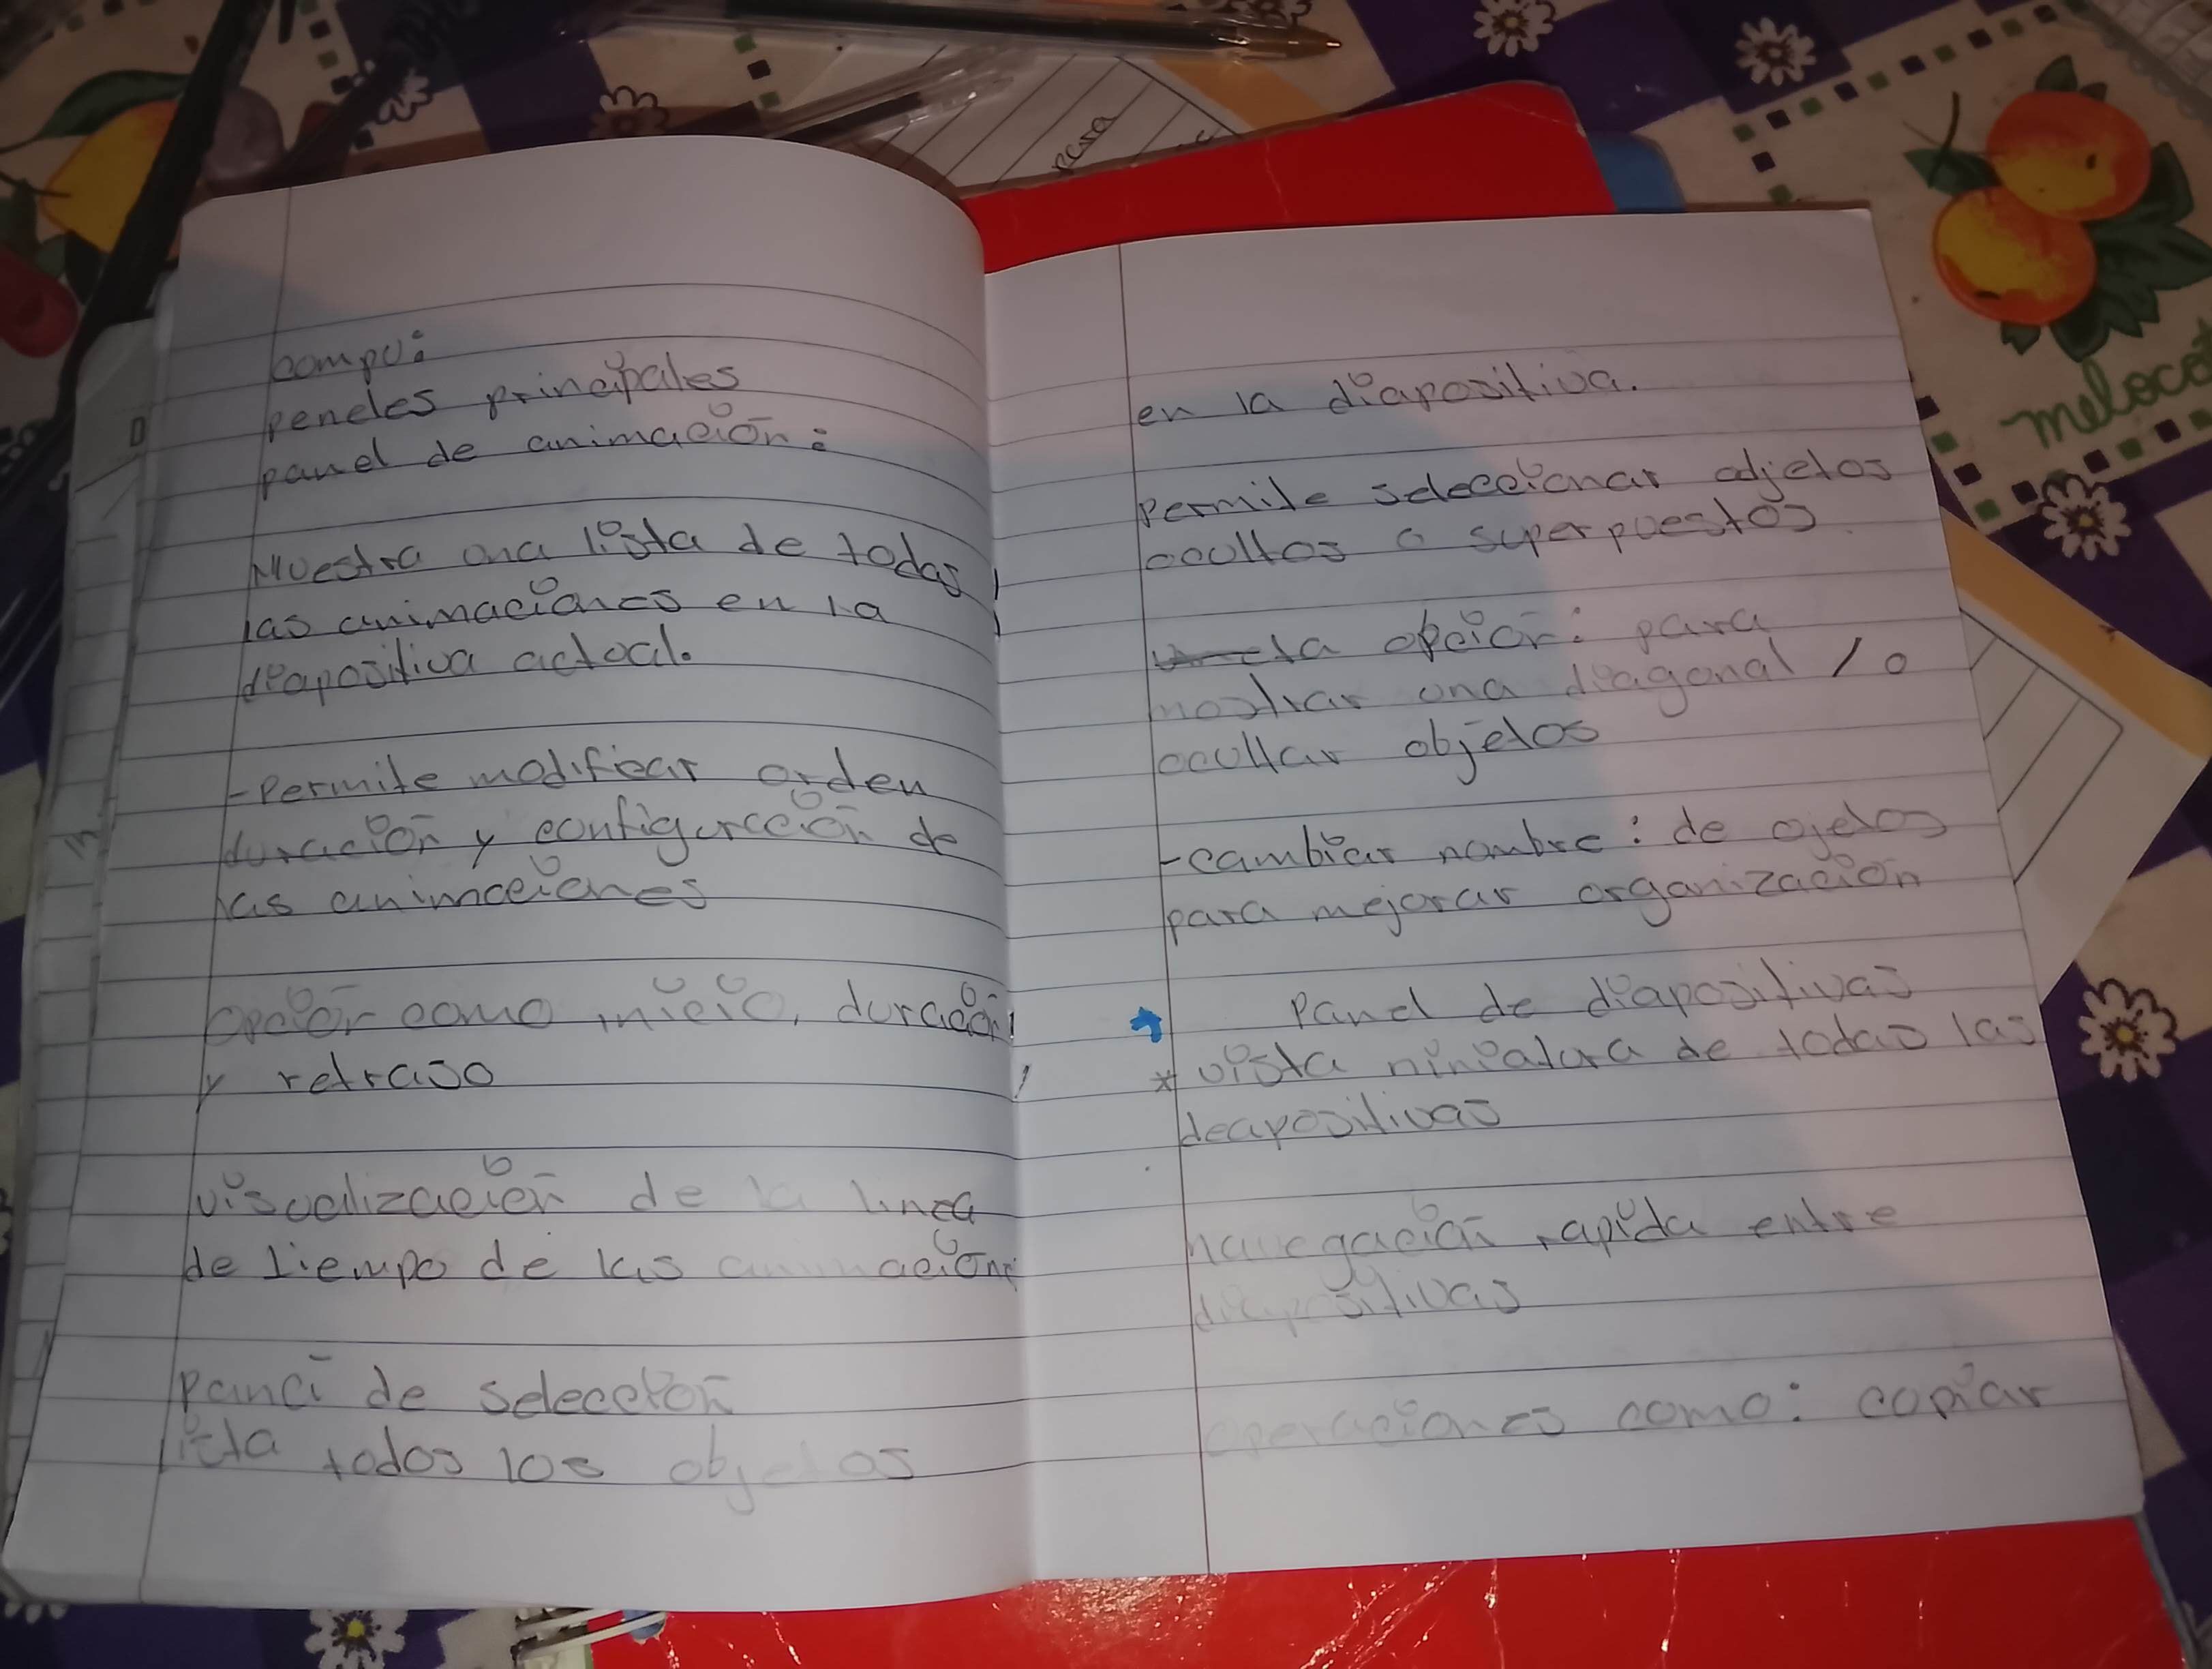 para
compu:
peneles principales
panel de animación:
Muestra una lista de todas
las animaciones en la
diapositiva actual.
-Permite modificar orden
duración y configuración de
las animaciones
Opción como inicio, duración
y retraso
visualización de la linea
de tiempo de las animacion
Panel de selección
lista todos los objetos
en la diapositiva.
Permite seleccionar objetos
ocultos o superpuestos
la opción: para
mostrar una diagonal / o
ocultar objetos
-cambiar nombre: de ojetos
para mejorar organización
Panel de diapositivas
* vista miniatura de todas las
deapositivas
navegación rapida entre
diapositivas
operaciones como: copiar
meloco